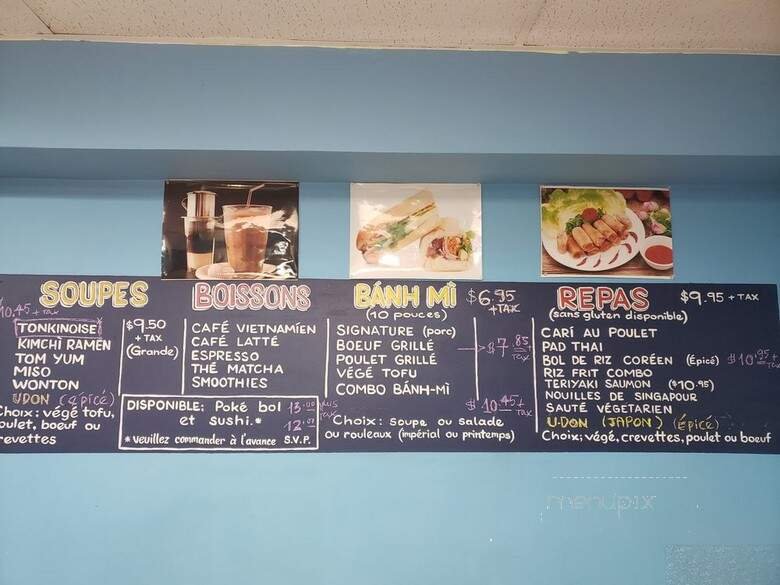 SOUPES
10.45 + TAX
TONKINOISE
KIMCHI RAMEN
TOM YUM
MISO
WONTON
UDON (épicé)
Choix: végé tofu,
poulet, boeuf ou
crevettes
$9.50
+ TAX
(Grande)
BOISSONS
CAFÉ VIETNAMIEN
CAFÉ LATTÉ
ESPRESSO
THÉ MATCHA
SMOOTHIES
DISPONIBLE: Poké bol 13.00
et sushi.* 12.00
*veuillez commander à l'avance S.V.P.
BÁNH MÌ $6.95
(10 pouces) +TAX
SIGNATURE (porc)
BOEUF GRILLÉ $7.85
POULET GRILLÉ TAX
VÉGÉ TOFU
COMBO BÁNH-MÌ $10.45 + TAX
Choix: soupe ou salade
ou rouleaux (impérial ou printemps)
REPAS $9.95 + TAX
(sans gluten disponible)
CARI AU POULET
PAD THAI
BOL DE RIZ CORÉEN (Épicé) $10.95 + TAX
RIZ FRIT COMBO
TERIYAKI SAUMON ($10.95)
NOUILLES DE SINGAPOUR
SAUTÉ VÉGETARIEN
UDON (JAPON) (épicé)
Choix: végé, crevettes, poulet ou boeuf
menupix